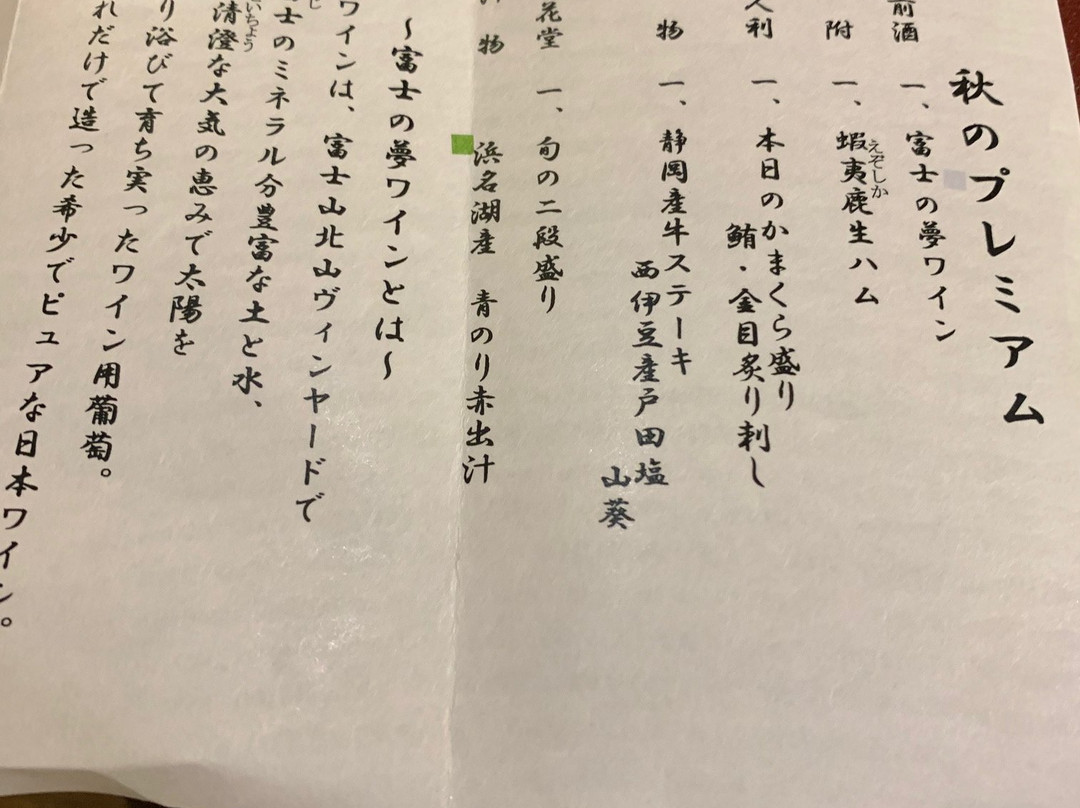 秋のプレミアム
前酒 一、富士の夢ワイン
附 一、蝦夷鹿生ハム
えぞしか
利 一、本日のかまくら盛り
鮪・金目炙り刺し
物 一、静岡産牛ステーキ
西伊豆産戸田塩
山葵
花堂 一、旬の二段盛り
物 浜名湖産 青のり赤出汁
〜富士の夢ワインとは〜
ワインは、富士山北山ヴィンヤードで
士のミネラル分豊富な土と水、
清澄な大気の恵みで太陽を
いちょう
り浴びて育ち実ったワイン用葡萄。
れだけで造った希少でピュアな日本ワイン。